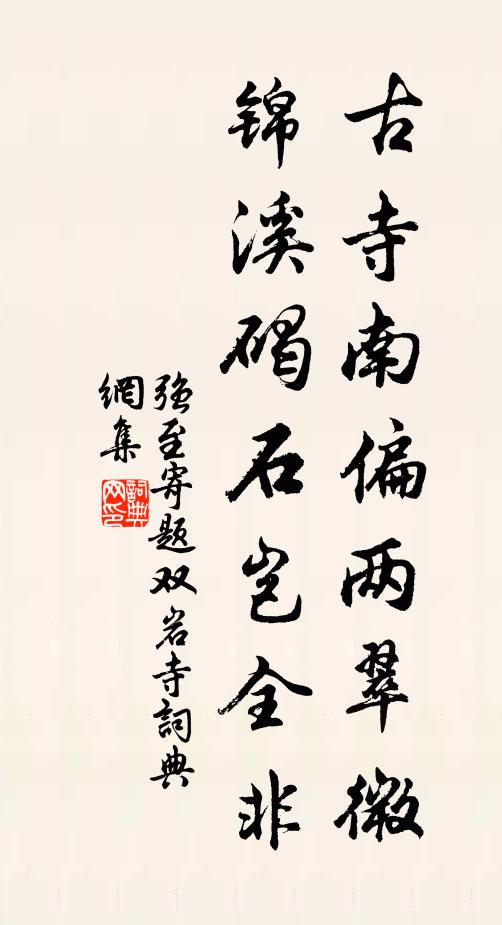 古寺南偏两翠微
锦溪碣石岂全非
强至寄题双岩寺詞典
網集
詞典